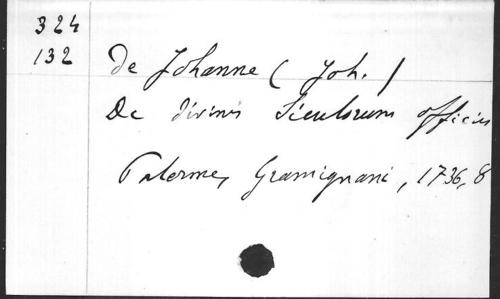 324
132
de Johanne (Joh.)
De divinis Siculorum officiis
Palerme, Gramignani, 1736, 8